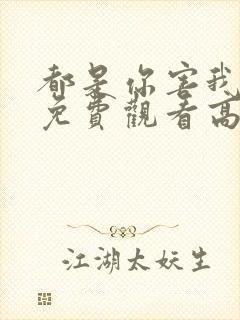 都是你害我
免費觀看高
江湖太妖生